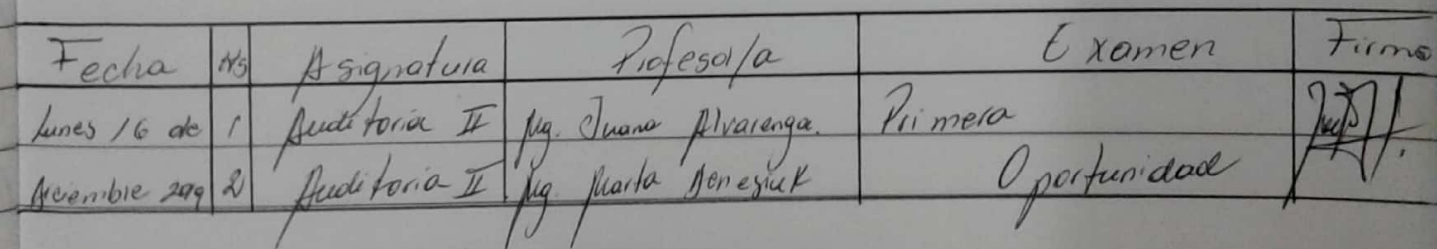 Fecha Hs Asignatura Profesor/a Examen Firma
Lunes 16 de 1 Auditoria II Mg. Juana Alvarenga. Primera
Diciembre 2019 2 Auditoria II Mg. Marta Oportunidad